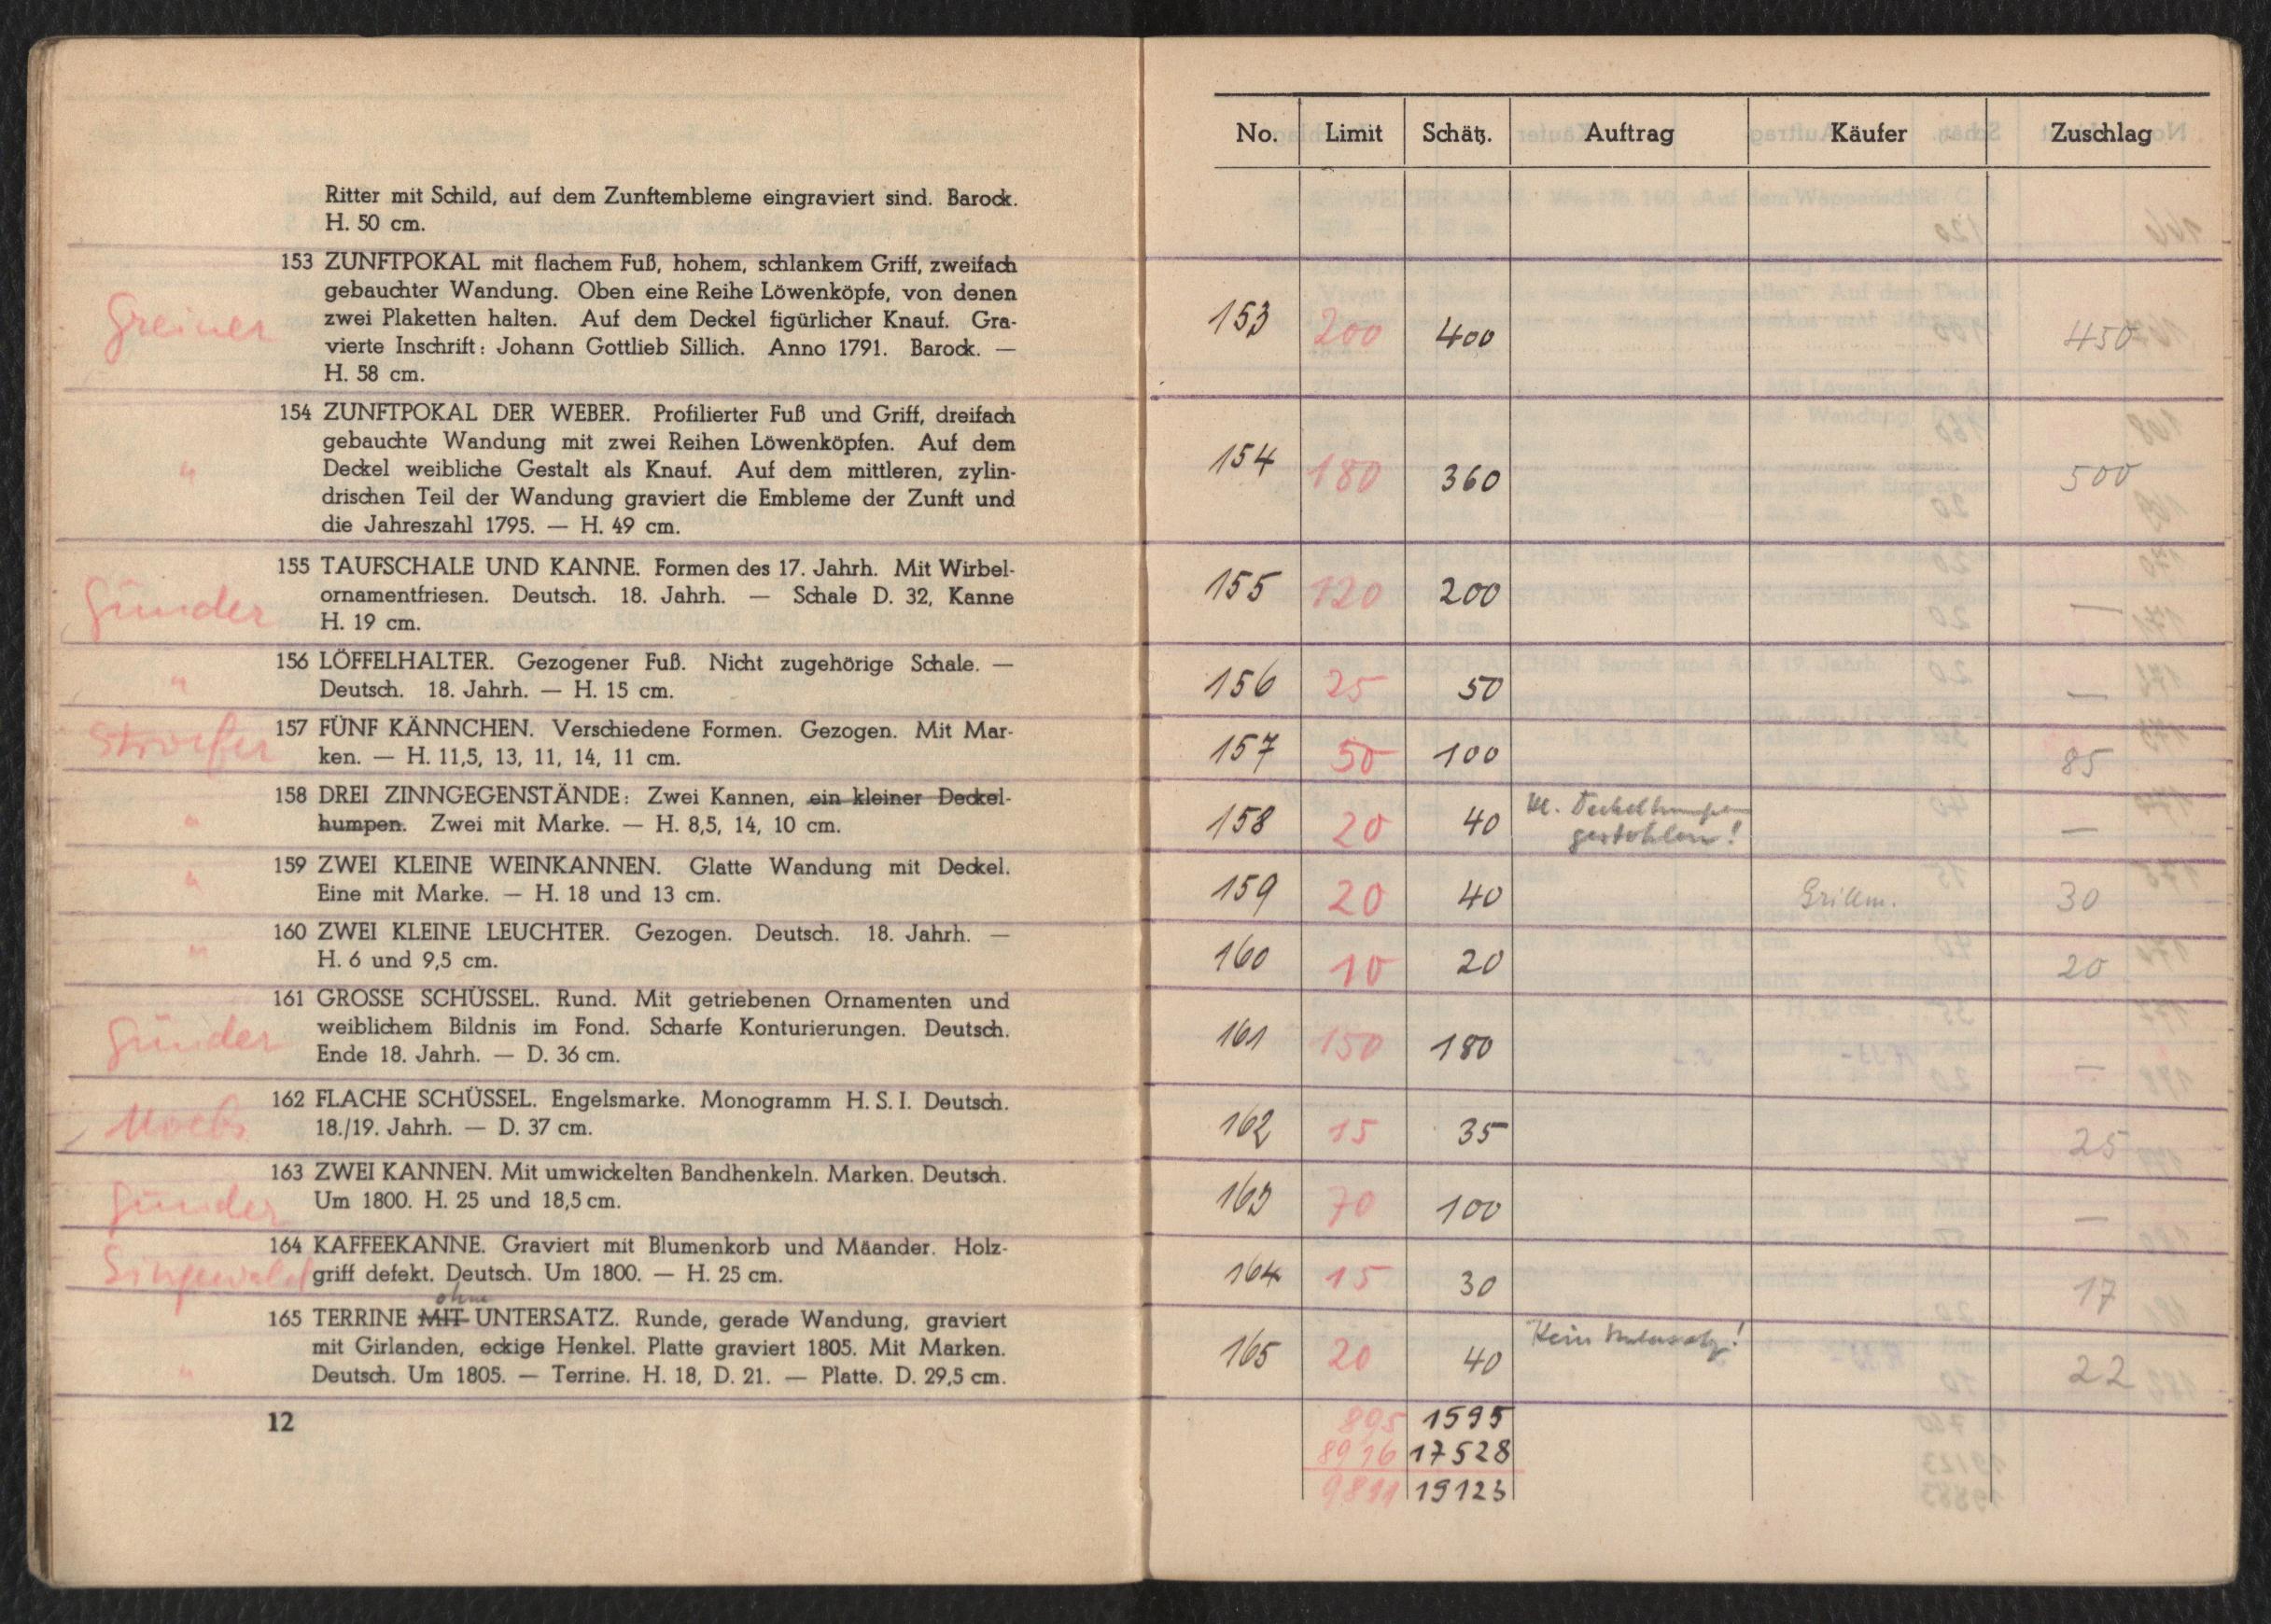 Ritter mit Schild, auf dem Zunftembleme eingraviert sind. Barock.
H. 50 cm.
Greiner
153 ZUNFTPOKAL mit flachem Fuß, hohem, schlankem Griff, zweifach
gebauchter Wandung. Oben eine Reihe Löwenköpfe, von denen
zwei Plaketten halten. Auf dem Deckel figürlicher Knauf. Gra-
vierte Inschrift: Johann Gottlieb Sillich. Anno 1791. Barock. —
H. 58 cm.
"
154 ZUNFTPOKAL DER WEBER. Profilierter Fuß und Griff, dreifach
gebauchte Wandung mit zwei Reihen Löwenköpfen. Auf dem
Deckel weibliche Gestalt als Knauf. Auf dem mittleren, zylin-
drischen Teil der Wandung graviert die Embleme der Zunft und
die Jahreszahl 1795. — H. 49 cm.
Günder
155 TAUFSCHALE UND KANNE. Formen des 17. Jahrh. Mit Wirbel-
ornamentfriesen. Deutsch. 18. Jahrh. — Schale D. 32, Kanne
H. 19 cm.
"
156 LÖFFELHALTER. Gezogener Fuß. Nicht zugehörige Schale. —
Deutsch. 18. Jahrh. — H. 15 cm.
157 FÜNF KÄNNCHEN. Verschiedene Formen. Gezogen. Mit Mar-
ken. — H. 11,5, 13, 11, 14, 11 cm.
"
158 DREI ZINNGEGENSTÄNDE: Zwei Kannen, ein kleiner Deckel-
humpen. Zwei mit Marke. — H. 8,5, 14, 10 cm.
"
159 ZWEI KLEINE WEINKANNEN. Glatte Wandung mit Deckel.
Eine mit Marke. — H. 18 und 13 cm.
"
160 ZWEI KLEINE LEUCHTER. Gezogen. Deutsch. 18. Jahrh. —
H. 6 und 9,5 cm.
Günder
161 GROSSE SCHÜSSEL. Rund. Mit getriebenen Ornamenten und
weiblichem Bildnis im Fond. Scharfe Konturierungen. Deutsch.
Ende 18. Jahrh. — D. 36 cm.
Moebs
162 FLACHE SCHÜSSEL. Engelsmarke. Monogramm H. S. I. Deutsch.
18./19. Jahrh. — D. 37 cm.
Günder
163 ZWEI KANNEN. Mit umwickelten Bandhenkeln. Marken. Deutsch.
Um 1800. H. 25 und 18,5 cm.
Singewald
164 KAFFEEKANNE. Graviert mit Blumenkorb und Mäander. Holz-
griff defekt. Deutsch. Um 1800. — H. 25 cm.
ohne
"
165 TERRINE MIT UNTERSATZ. Runde, gerade Wandung, graviert
mit Girlanden, eckige Henkel. Platte graviert 1805. Mit Marken.
Deutsch. Um 1805. — Terrine. H. 18, D. 21. — Platte. D. 29,5 cm.
12
No. Limit Schätz. Auftrag Käufer Zuschlag
153 200 400 450
154 180 360 500
155 120 200 —
156 25 50 —
157 50 100 85
158 20 40 kl. Deckelhumpen gestohlen! —
159 20 40 Grillm. 30
160 10 20 20
161 150 180 —
162 15 35 25
163 70 100 —
164 15 30 17
165 20 40 Kein Untersatz! 22
895 1595
8916 17528
9811 19123